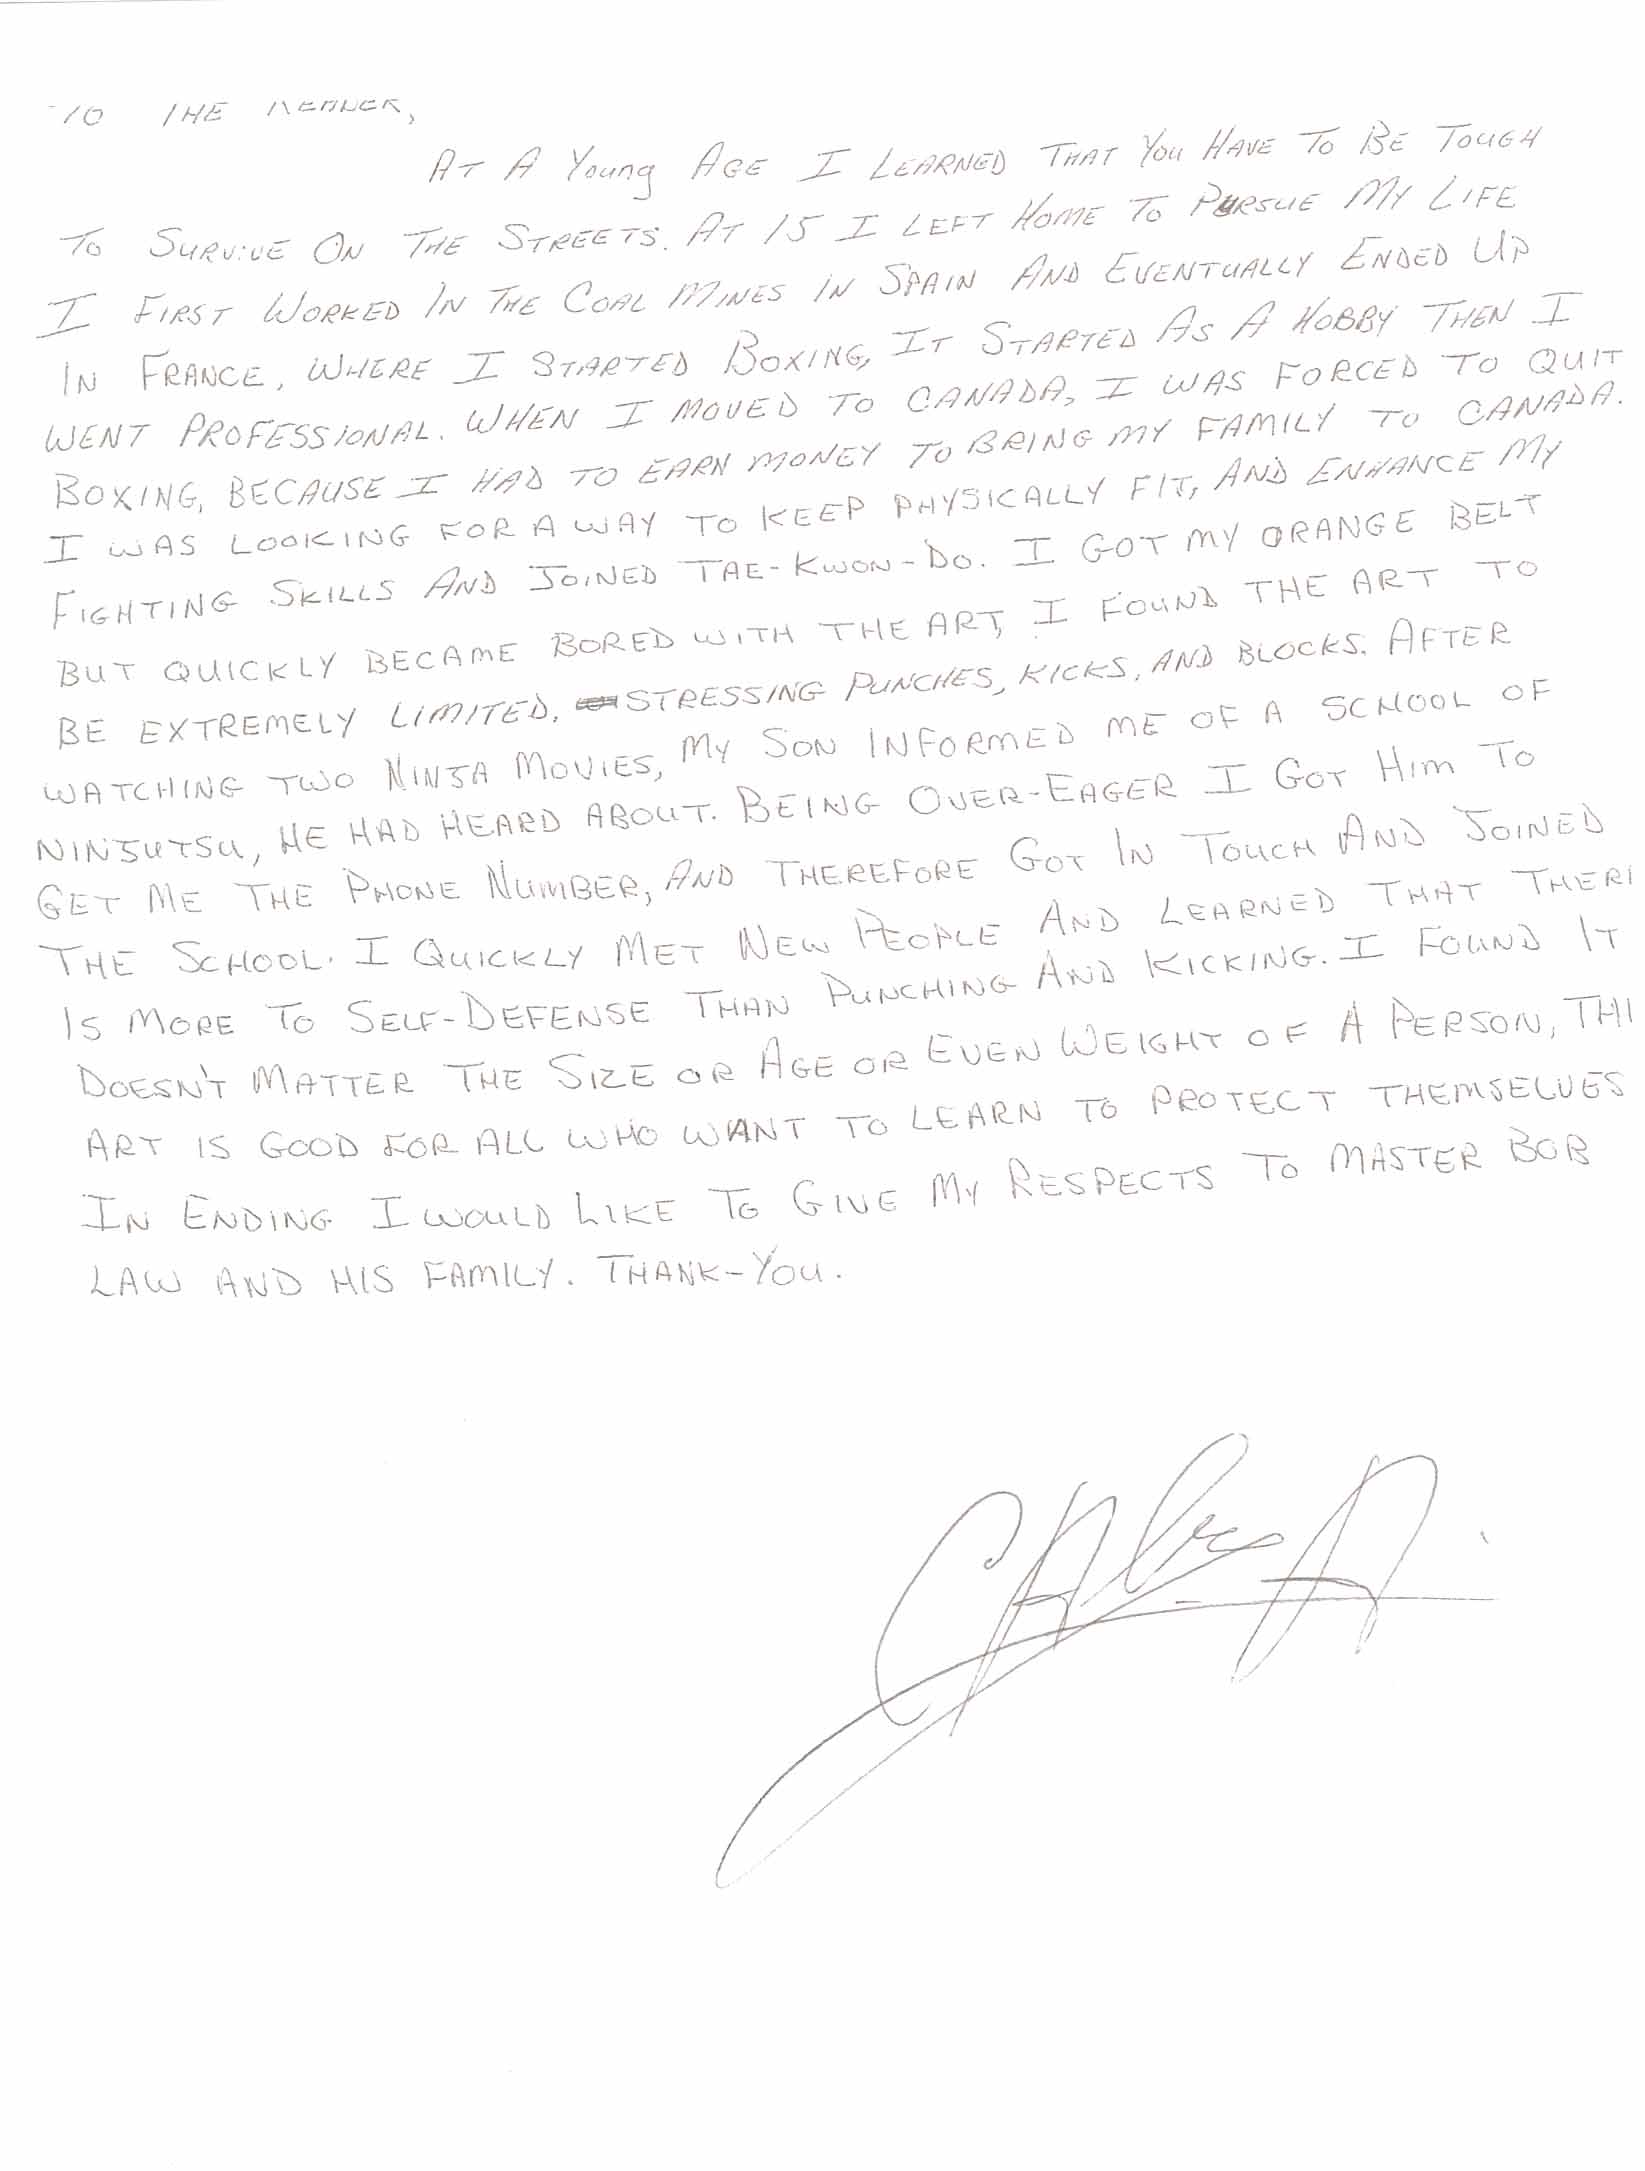 To THE READER,
AT A Young AGE I LEARNED THAT You HAVE To BE TOUGH
To SURVIVE ON THE STREETS. AT 15 I LEFT HOME TO PURSUE MY LIFE
I FIRST WORKED IN THE COAL MINES IN SPAIN AND EVENTUALLY ENDED UP
IN FRANCE, WHERE I STARTED BOXING, IT STARTED AS A HOBBY THEN I
WENT PROFESSIONAL. WHEN I MOVED TO CANADA, I WAS FORCED TO QUIT
BOXING, BECAUSE I HAD TO EARN MONEY TO BRING MY FAMILY TO CANADA.
I WAS LOOKING FOR A WAY TO KEEP PHYSICALLY FIT, AND ENHANCE MY
FIGHTING SKILLS AND JOINED TAE-KWON-DO. I GOT MY ORANGE BELT
BUT QUICKLY BECAME BORED WITH THE ART, I FOUND THE ART TO
BE EXTREMELY LIMITED, STRESSING PUNCHES, KICKS, AND BLOCKS. AFTER
WATCHING TWO NINJA MOVIES, MY SON INFORMED ME OF A SCHOOL OF
NINJUTSU, HE HAD HEARD ABOUT. BEING OVER-EAGER I GOT HIM TO
GET ME THE PHONE NUMBER, AND THEREFORE GOT IN TOUCH AND JOINED
THE SCHOOL. I QUICKLY MET NEW PEOPLE AND LEARNED THAT THER
IS MORE TO SELF-DEFENSE THAN PUNCHING AND KICKING. I FOUND IT
DOESN'T MATTER THE SIZE OR AGE OR EVEN WEIGHT OF A PERSON, THI
ART IS GOOD FOR ALL WHO WANT TO LEARN TO PROTECT THEMSELVES
IN ENDING I WOULD LIKE TO GIVE MY RESPECTS TO MASTER BOB
LAW AND HIS FAMILY. THANK-YOU.